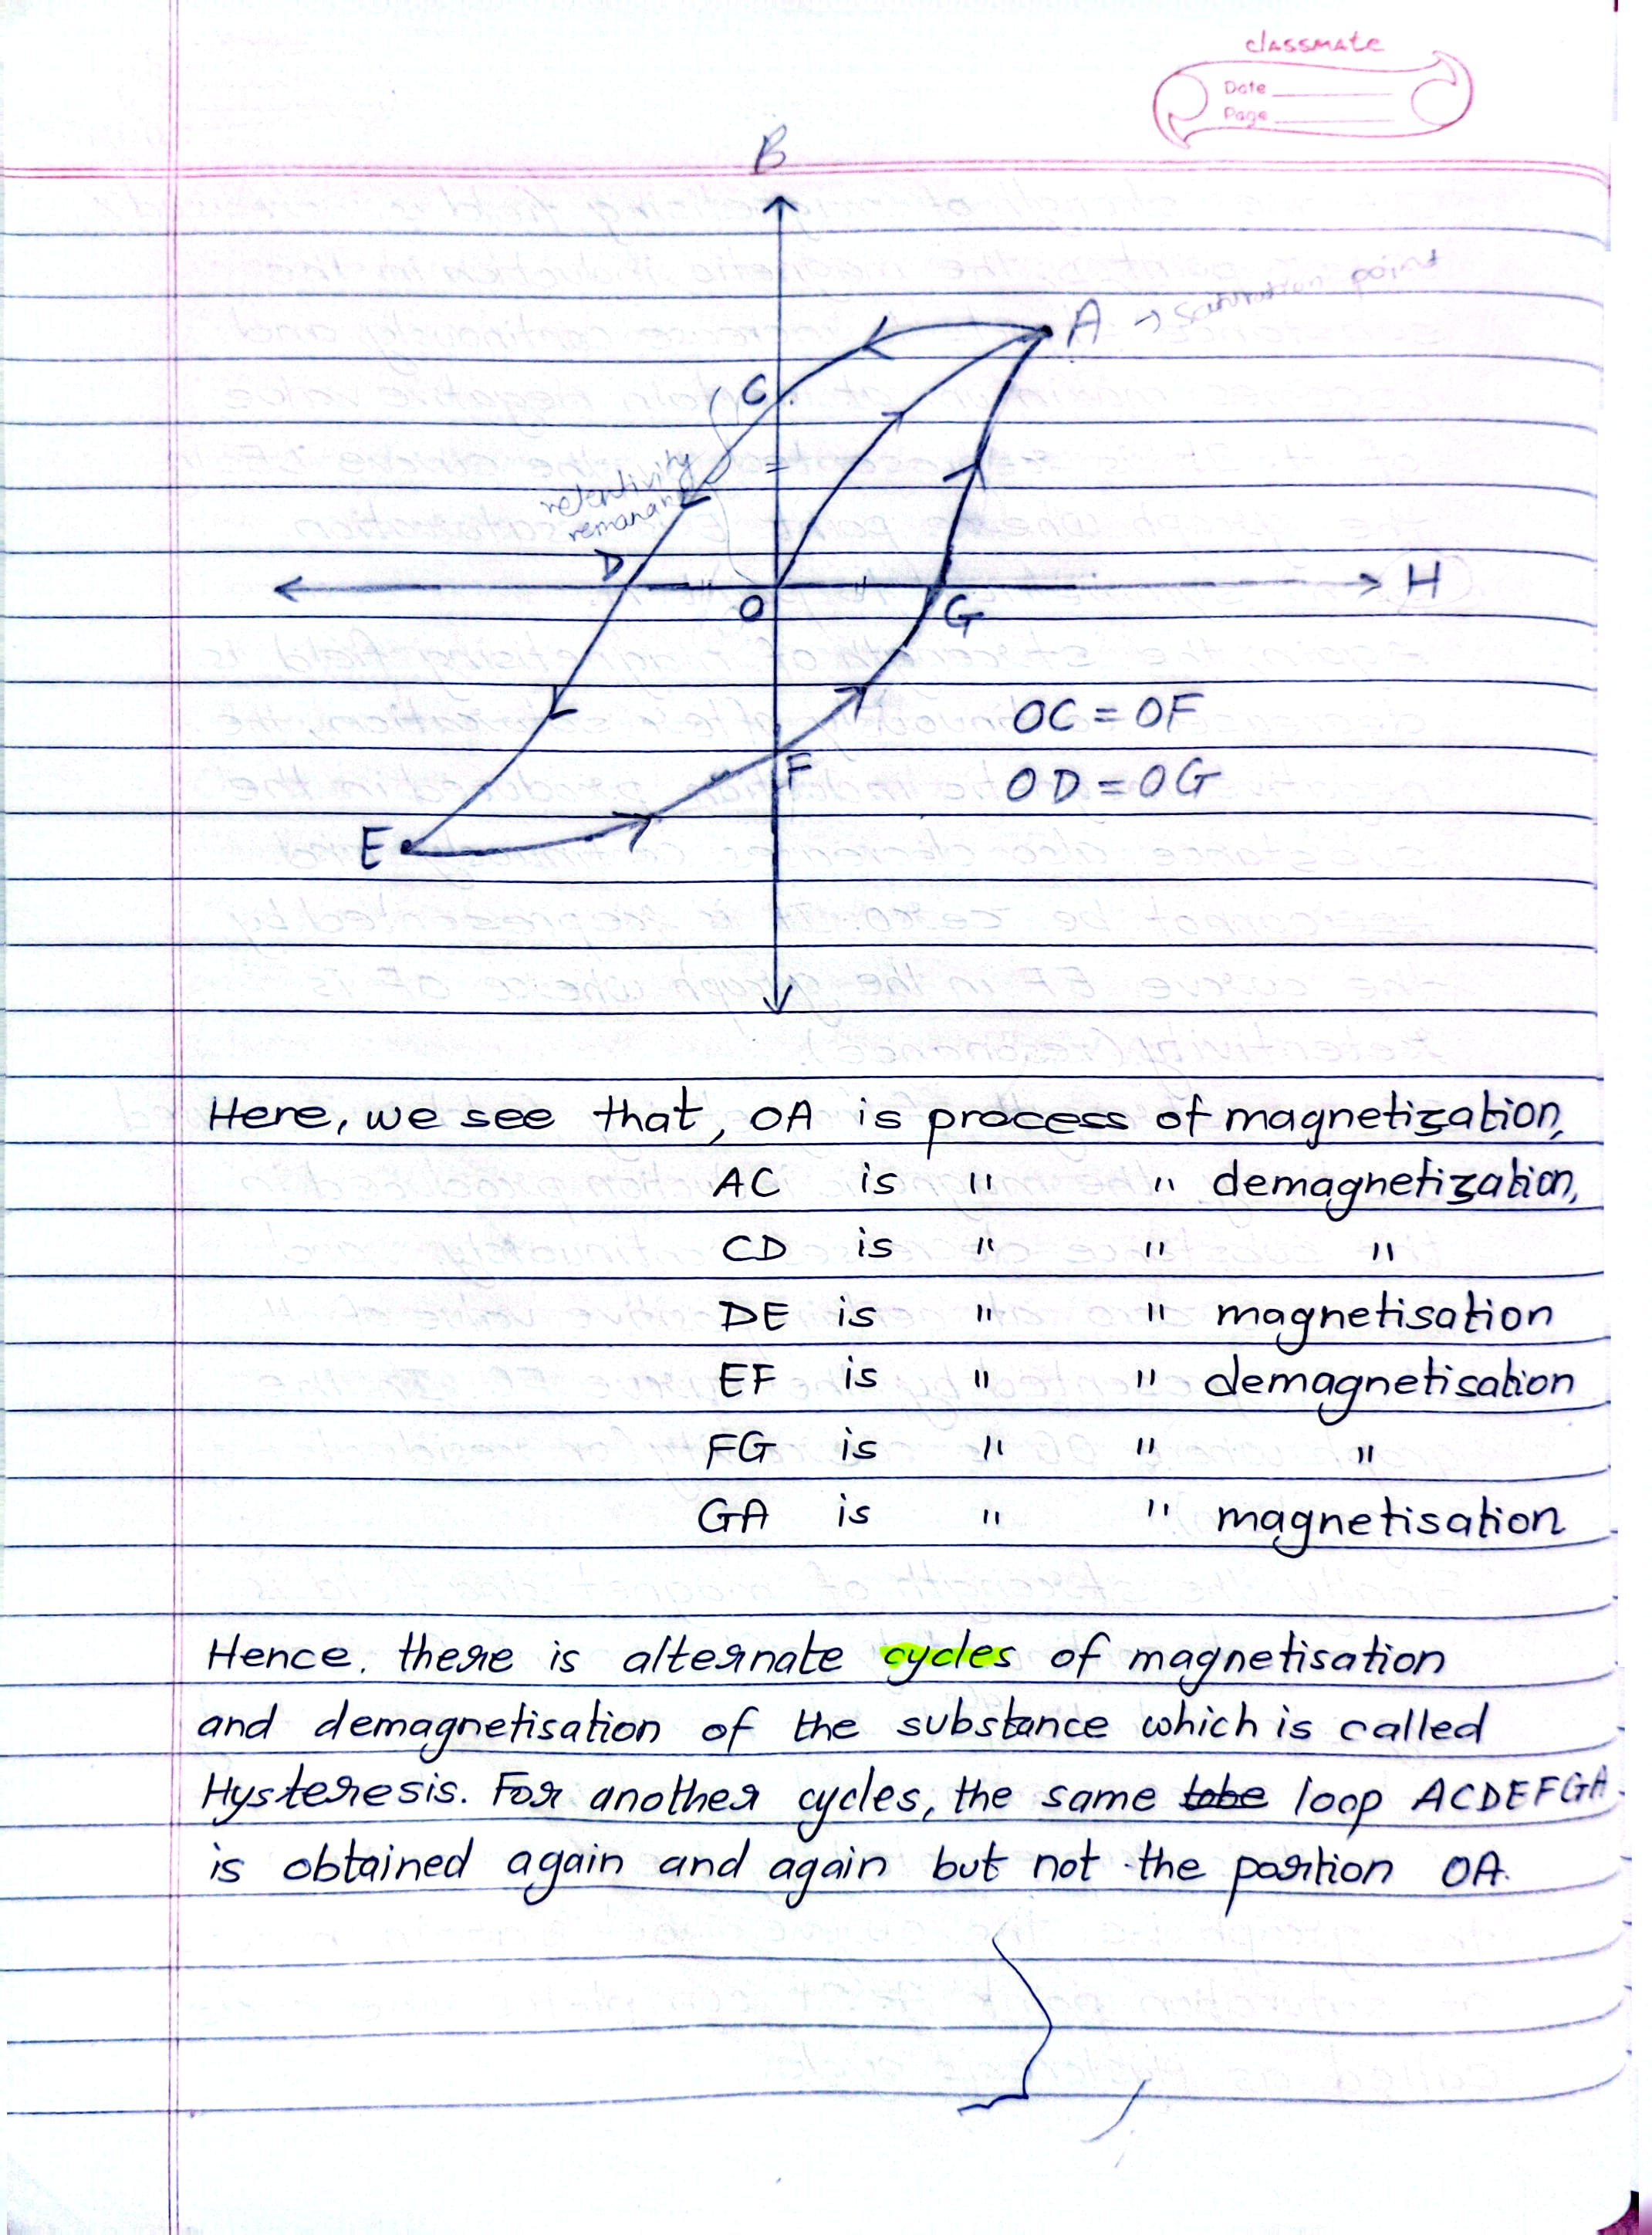 classmate
Date
Page
B
A → saturation point
C
retentivity
remanan
D
O
G
H
OC = OF
OD = OG
F
E
Here, we see that, OA is process of magnetization,
AC is " " demagnetization,
CD is " " "
DE is " " magnetisation
EF is " " demagnetisation
FG is " " "
GA is " " magnetisation
Hence, there is alternate cycles of magnetisation
and demagnetisation of the substance which is called
Hysteresis. For another cycles, the same loop ACDEFGA
is obtained again and again but not the portion OA.